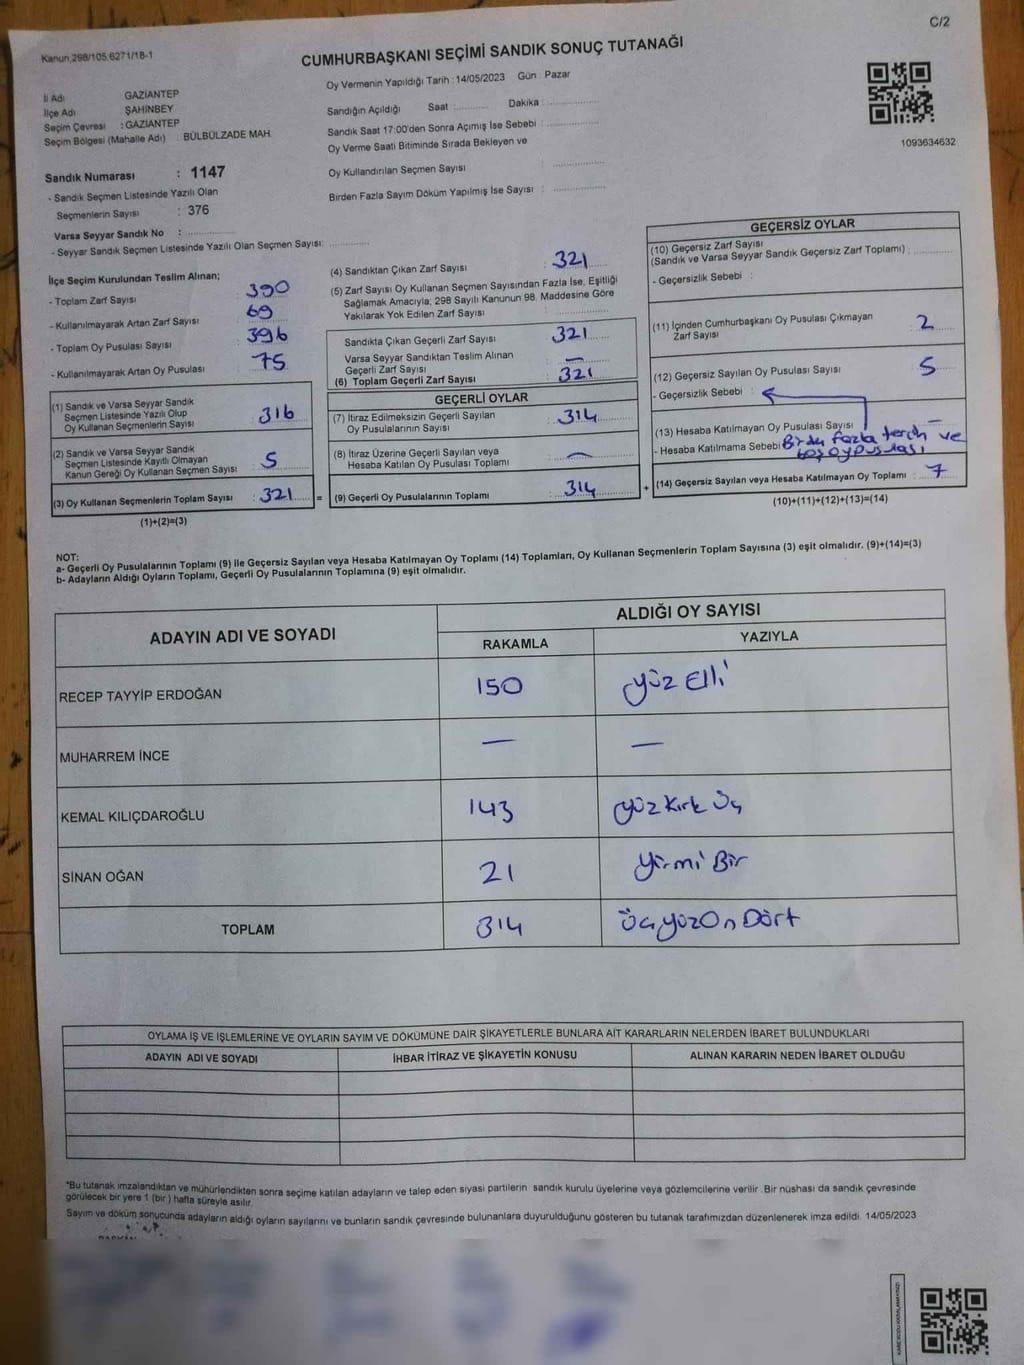 C/2
Kanun 298/105,6271/18-1
CUMHURBAŞKANI SEÇİMİ SANDIK SONUÇ TUTANAĞI
İl Adı GAZİANTEP
İlçe Adı ŞAHİNBEY
Seçim Çevresi : GAZİANTEP
Seçim Bölgesi (Mahalle Adı) : BÜLBÜLZADE MAH.
Oy Vermenin Yapıldığı Tarih : 14/05/2023 Gün : Pazar
Sandığın Açıldığı Saat : Dakika :
Sandık Saat 17:00'den Sonra Açımış İse Sebebi :
Oy Verme Saati Bitiminde Sırada Bekleyen ve
Oy Kullandırılan Seçmen Sayısı :
Birden Fazla Sayım Döküm Yapılmış İse Sayısı :
1093634632
Sandık Numarası : 1147
- Sandık Seçmen Listesinde Yazılı Olan
Seçmenlerin Sayısı : 376
Varsa Seyyar Sandık No :
- Seyyar Sandık Seçmen Listesinde Yazılı Olan Seçmen Sayısı:
İlçe Seçim Kurulundan Teslim Alınan;
- Toplam Zarf Sayısı : 390
- Kullanılmayarak Artan Zarf Sayısı : 69
- Toplam Oy Pusulası Sayısı : 396
- Kullanılmayarak Artan Oy Pusulası : 75
(1) Sandık ve Varsa Seyyar Sandık
Seçmen Listesinde Yazılı Olup
Oy Kullanan Seçmenlerin Sayısı : 316
(2) Sandık ve Varsa Seyyar Sandık
Seçmen Listesinde Kayıtlı Olmayan
Kanun Gereği Oy Kullanan Seçmen Sayısı : 5
(3) Oy Kullanan Seçmenlerin Toplam Sayısı : 321 =
(1)+(2)=(3)
(4) Sandıktan Çıkan Zarf Sayısı : 321
(5) Zarf Sayısı Oy Kullanan Seçmen Sayısından Fazla İse, Eşitliği
Sağlamak Amacıyla; 298 Sayılı Kanunun 98. Maddesine Göre
Yakılarak Yok Edilen Zarf Sayısı :
Sandıkta Çıkan Geçerli Zarf Sayısı : 321
Varsa Seyyar Sandıktan Teslim Alınan
Geçerli Zarf Sayısı : —
(6) Toplam Geçerli Zarf Sayısı : 321
GEÇERLİ OYLAR
(7) İtiraz Edilmeksizin Geçerli Sayılan
Oy Pusulalarının Sayısı : 314
(8) İtiraz Üzerine Geçerli Sayılan veya
Hesaba Katılan Oy Pusulası Toplamı : —
(9) Geçerli Oy Pusulalarının Toplamı : 314 +
GEÇERSİZ OYLAR
(10) Geçersiz Zarf Sayısı
(Sandık ve Varsa Seyyar Sandık Geçersiz Zarf Toplamı) :
- Geçersizlik Sebebi :
(11) İçinden Cumhurbaşkanı Oy Pusulası Çıkmayan
Zarf Sayısı : 2
(12) Geçersiz Sayılan Oy Pusulası Sayısı : 5
- Geçersizlik Sebebi :
(13) Hesaba Katılmayan Oy Pusulası Sayısı : —
- Hesaba Katılmama Sebebi Birden fazla tercih ve
boş oy pusulası
(14) Geçersiz Sayılan veya Hesaba Katılmayan Oy Toplamı : 7
(10)+(11)+(12)+(13)=(14)
NOT:
a- Geçerli Oy Pusulalarının Toplamı (9) ile Geçersiz Sayılan veya Hesaba Katılmayan Oy Toplamı (14) Toplamları, Oy Kullanan Seçmenlerin Toplam Sayısına (3) eşit olmalıdır. (9)+(14)=(3)
b- Adayların Aldığı Oyların Toplamı, Geçerli Oy Pusulalarının Toplamına (9) eşit olmalıdır.
ADAYIN ADI VE SOYADI ALDIĞI OY SAYISI
RAKAMLA YAZIYLA
RECEP TAYYİP ERDOĞAN 150 yüz Elli
MUHARREM İNCE — —
KEMAL KILIÇDAROĞLU 143 yüz kırk üç
SİNAN OĞAN 21 yirmi Bir
TOPLAM 314 üçyüz On Dört
OYLAMA İŞ VE İŞLEMLERİNE VE OYLARIN SAYIM VE DÖKÜMÜNE DAİR ŞİKAYETLERLE BUNLARA AİT KARARLARIN NELERDEN İBARET BULUNDUKLARI
ADAYIN ADI VE SOYADI İHBAR İTİRAZ VE ŞİKAYETİN KONUSU ALINAN KARARIN NEDEN İBARET OLDUĞU
*Bu tutanak imzalandıktan ve mühürlendikten sonra seçime katılan adayların ve talep eden siyasi partilerin sandık kurulu üyelerine veya gözlemcilerine verilir. Bir nüshası da sandık çevresinde
görülecek bir yere 1 (bir) hafta süreyle asılır.
Sayım ve döküm sonucunda adayların aldığı oyların sayılarını ve bunların sandık çevresinde bulunanlara duyurulduğunu gösteren bu tutanak tarafımızdan düzenlenerek imza edildi. 14/05/2023